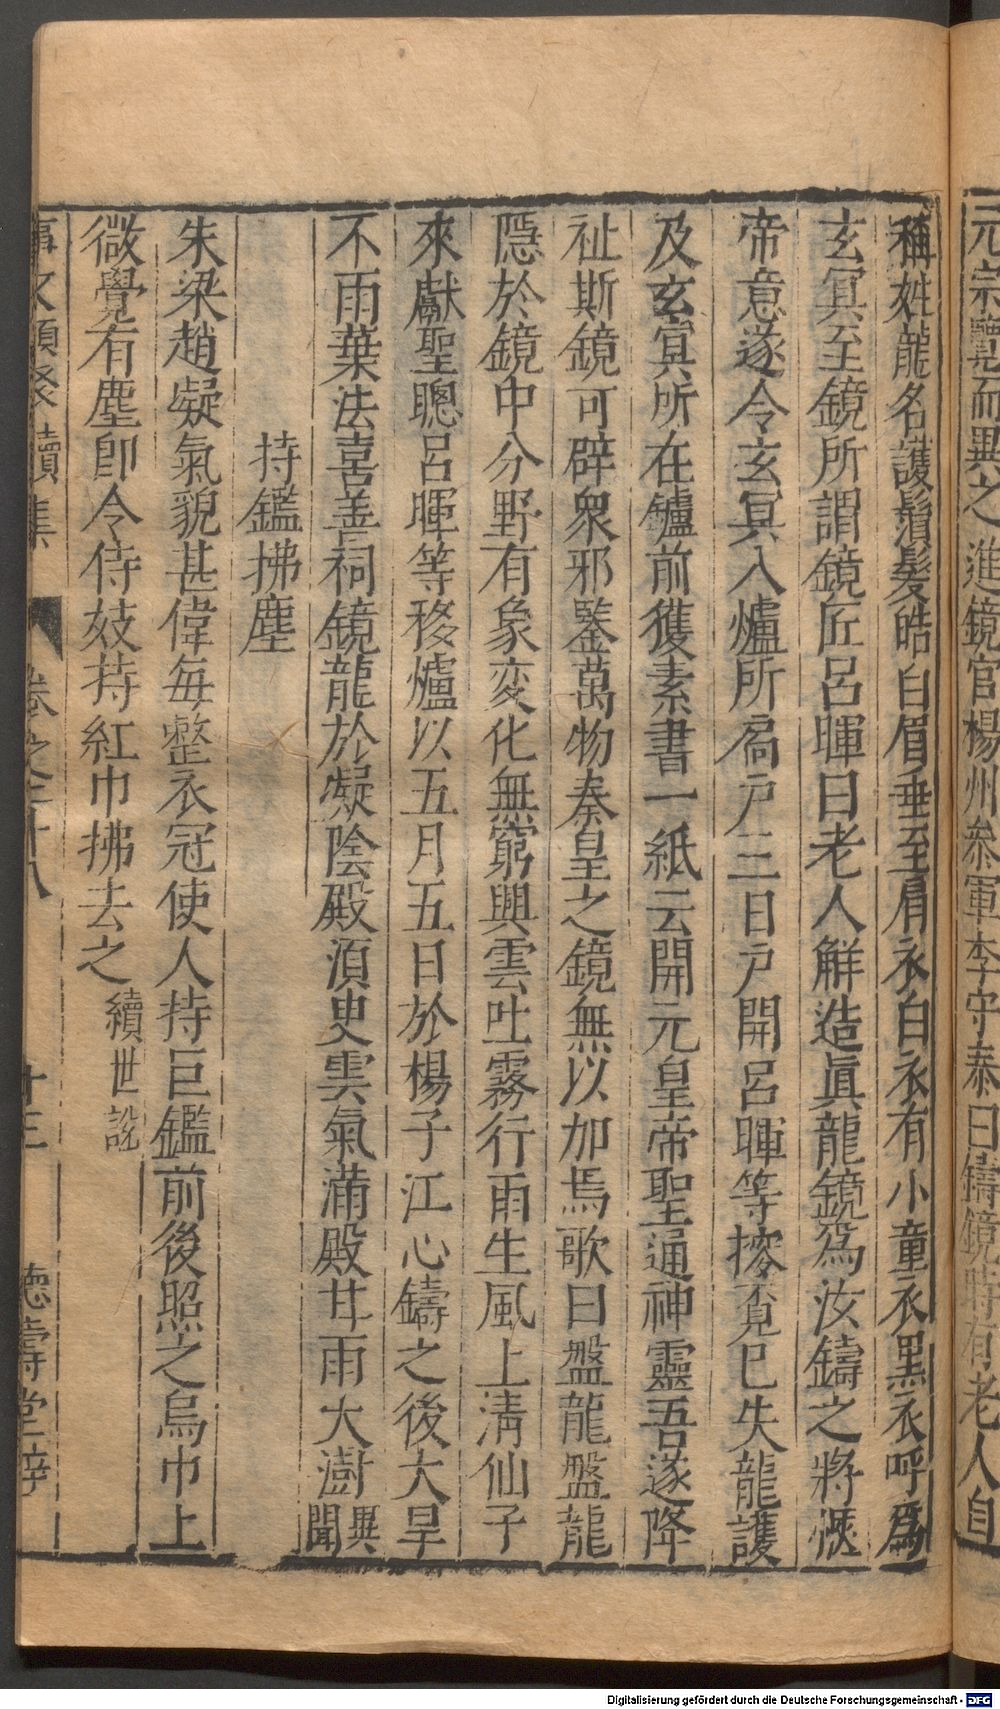 元宗覽而異之進鏡官楊州叅軍李守泰曰鑄鏡時有老人自
稱姓龍名護鬚髮皓白眉垂至肩衣白衣有小童衣黑衣呼爲
玄冥至鏡所謂鏡匠呂暉曰老人解造眞龍鏡爲汝鑄之將愜
帝意遂令玄冥入爐所扃戶三日戶開呂暉等搜覓已失龍護
及玄冥所在鑪前獲素書一紙云開元皇帝聖通神靈吾遂降
祉斯鏡可辟衆邪鑒萬物秦皇之鏡無以加焉歌曰盤龍盤龍
隱於鏡中分野有象変化無窮興雲吐霧行雨生風上淸仙子
來獻聖聰呂暉等移爐以五月五日於楊子江心鑄之後大旱
不雨葉法喜善祠鏡龍於凝陰殿湏史雲氣滿殿甘雨大澍異聞
持鑑拂塵
朱梁趙凝氣貌甚偉每整衣冠使人持巨鑑前後照之烏巾上
微覺有塵卽令侍妓持紅巾拂去之續世說
事文類聚續集 卷之二十八 十三 德壽堂梓
Digitalisierung gefördert durch die Deutsche Forschungsgemeinschaft - DFG